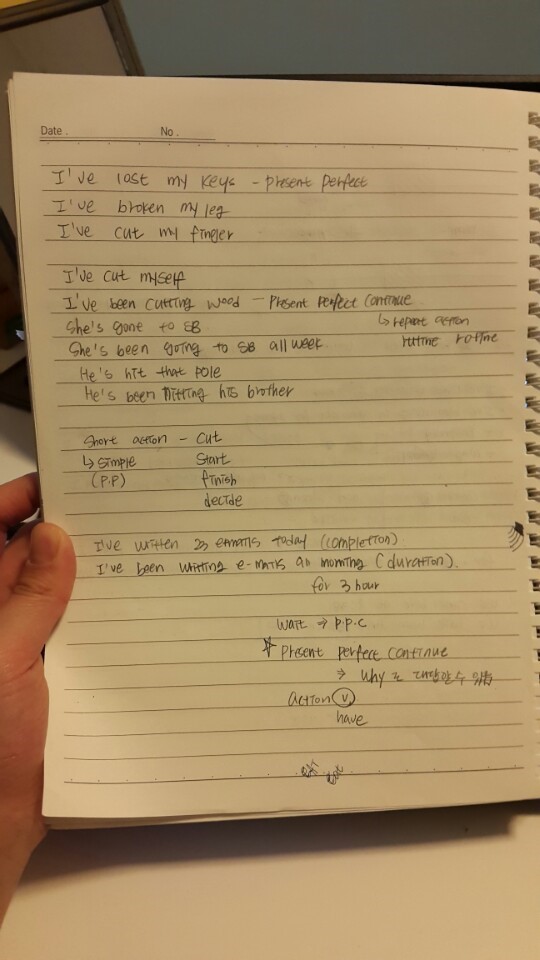 Date. No.
I've lost my keys - present perfect
I've broken my leg
I've cut my finger
I've cut myself
I've been cutting wood - Present Perfect continue
She's gone to SB ↳ repeat action
She's been going to SB all week. rutine rotine
He's hit that pole
He's been hitting his brother
Short action - cut
↳ simple start
(P.P) finish
decide
I've written 23 emails today (completion)
I've been writing e-mails all morning (duration).
for 3 hour
wait ⇒ P.P.C
☆ Present perfect continue
⇒ Why 로 대답할 수 있음
action ⓥ
have